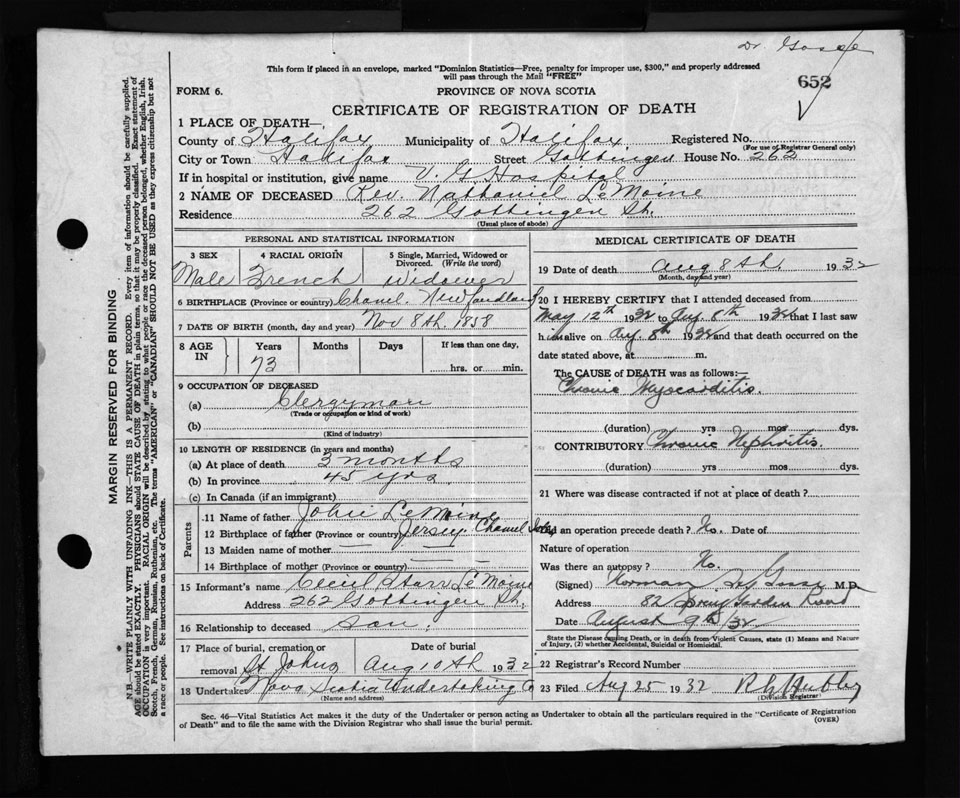 Dr
This form if placed in an envelope, marked "Dominion Statistics—Free, penalty for improper use, $300," and properly addressed
will pass through the Mail "FREE"
652
FORM 6.
PROVINCE OF NOVA SCOTIA
CERTIFICATE OF REGISTRATION OF DEATH
1 PLACE OF DEATH—
County of Halifax Municipality of Halifax Registered No.
(For use of Registrar General only)
City or Town Halifax Street Gottingen House No. 262
If in hospital or institution, give name V. G. Hospital
2 NAME OF DECEASED Rev. Nathaniel LeMoine
Residence 262 Gottingen St.
(Usual place of abode)
PERSONAL AND STATISTICAL INFORMATION
3 SEX 4 RACIAL ORIGIN 5 Single, Married, Widowed or
Divorced. (Write the word)
Male French Widower
6 BIRTHPLACE (Province or country) Chanel. Newfoundland
7 DATE OF BIRTH (month, day and year) Nov 8th. 1858
8 AGE IN Years Months Days If less than one day,
73 hrs. or min.
9 OCCUPATION OF DECEASED
(a) Clergyman
(Trade or occupation or kind of work)
(b)
(Kind of industry)
10 LENGTH OF RESIDENCE (in years and months)
(a) At place of death 3 months
(b) In province 45 yrs.
(c) In Canada (if an immigrant)
Parents
11 Name of father John LeMoine
12 Birthplace of father (Province or country) Jersey Channel Isles
13 Maiden name of mother —
14 Birthplace of mother (Province or country)
15 Informant's name Cecil Starr LeMoine
Address 262 Gottingen St.
16 Relationship to deceased son.
17 Place of burial, cremation or Date of burial
removal St. Johns Aug 10th 1932
18 Undertaker Nova Scotia Undertaking Co
(Name and address)
MEDICAL CERTIFICATE OF DEATH
19 Date of death Aug 8th. 1932
(Month, day and year)
20 I HEREBY CERTIFY that I attended deceased from
May 12th 1932 to Aug. 8th 1932 that I last saw
him alive on Aug. 8th 1932 and that death occurred on the
date stated above, at m.
The CAUSE of DEATH was as follows:—
Chronic Myocarditis.
(duration) yrs mos dys.
CONTRIBUTORY Chronic Nephritis.
(duration) yrs mos dys.
21 Where was disease contracted if not at place of death?
Did an operation precede death? No. Date of
Nature of operation
Was there an autopsy? No.
(Signed) Norman H. M.D.
Address 82 Spring Garden Road
Date August 9th/32
State the Disease Causing Death, or in death from Violent Causes, state (1) Means and Nature
of Injury, (2) whether Accidental, Suicidal or Homicidal.
22 Registrar's Record Number
23 Filed Aug 25 1932
(Division Registrar)
Sec. 46—Vital Statistics Act makes it the duty of the Undertaker or person acting as Undertaker to obtain all the particulars required in the "Certificate of Registration
of Death" and to file the same with the Division Registrar who shall issue the burial permit. (OVER)
MARGIN RESERVED FOR BINDING
N.B.—WRITE PLAINLY WITH UNFADING INK—THIS IS A PERMANENT RECORD. Every item of information should be carefully supplied.
AGE should be stated EXACTLY. PHYSICIANS should STATE CAUSE OF DEATH in plain terms, so that it may be properly classified. Exact statement of
OCCUPATION is very important. RACIAL ORIGIN will be described by stating to what people or race the deceased person belonged, whether English, Irish,
Scotch, French, German, Russian, Ruthenian, etc. The terms "AMERICAN" or "CANADIAN" SHOULD NOT BE USED as they express citizenship but not
a race or people. See instructions on back of Certificate.